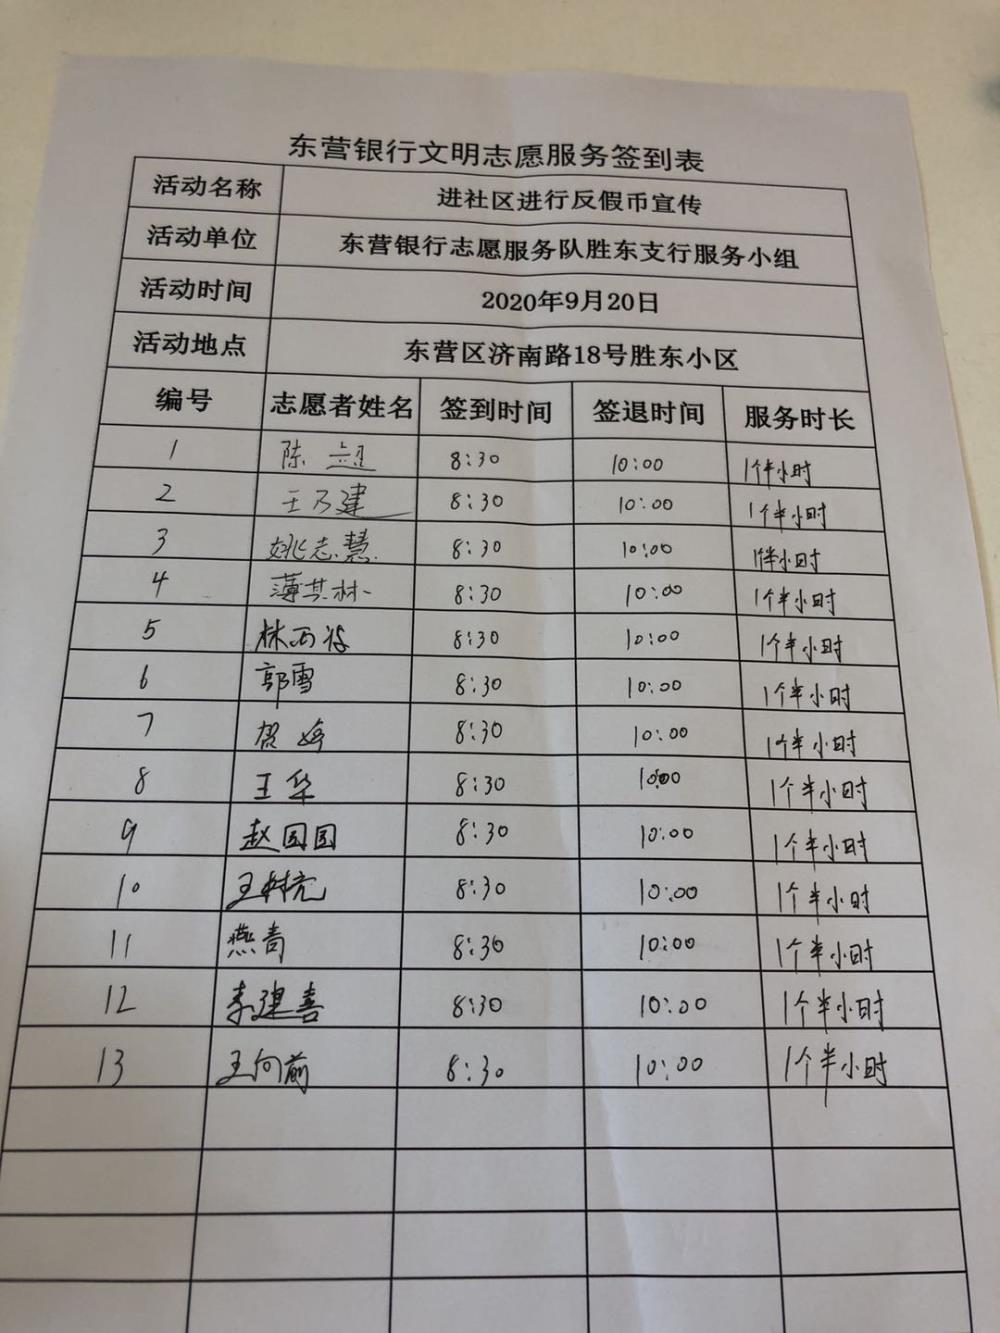 东营银行文明志愿服务签到表
活动名称 进社区进行反假币宣传
活动单位 东营银行志愿服务队胜东支行服务小组
活动时间 2020年9月20日
活动地点 东营区济南路18号胜东小区
编号 志愿者姓名 签到时间 签退时间 服务时长
1 陈 8:30 10:00 1个半小时
2 王乃建 8:30 10:00 1个半小时
3 姚志慧 8:30 10:00 1个半小时
4 薄其林 8:30 10:00 1个半小时
5 林西 8:30 10:00 1个半小时
6 郭雪 8:30 10:00 1个半小时
7 贺婷 8:30 10:00 1个半小时
8 王华 8:30 10:00 1个半小时
9 赵圆圆 8:30 10:00 1个半小时
10 王树亮 8:30 10:00 1个半小时
11 燕青 8:30 10:00 1个半小时
12 李建喜 8:30 10:00 1个半小时
13 王向前 8:30 10:00 1个半小时